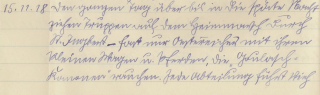 15.11.18. Den ganzen Tag über bis in die späte Nacht
ziehen Truppen aus dem Heimmarsch durch
St. Ingbert – fast nur Oesterreicher mit ihren
kleinen Wagen u. Pferden, die „Gulasch-
Kanonen" rauchen. Jede Abteilung führt sich